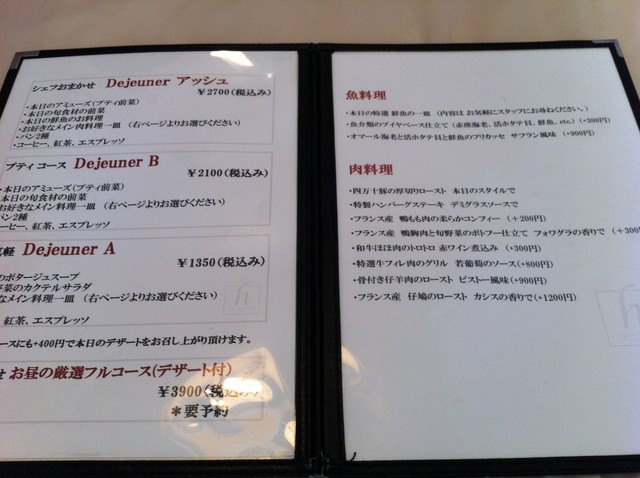 シェフおまかせ Dejeuner アッシュ
¥2700(税込み)
・本日のアミューズ(プティ前菜)
・本日の旬食材の前菜
・本日の鮮魚のお料理
お好きなメイン肉料理一皿 (右ページよりお選びください)
・パン2種
・コーヒー、紅茶、エスプレッソ
プティ コース Dejeuner B
¥2100(税込み)
・本日のアミューズ(プティ前菜)
本日の旬食材の前菜
お好きなメイン料理一皿 (右ページよりお選びください)
パン2種
ーヒー、紅茶、エスプレッソ
軽 Dejeuner A
¥1350(税込み)
のポタージュスープ
菜のカクテルサラダ
なメイン料理一皿 (右ページよりお選びください)
紅茶、エスプレッソ
ースにも+400円で本日のデザートをお召し上がり頂けます。
せ お昼の厳選フルコース(デザート付)
¥3900(税込み)
*要予約
魚料理
・本日の特選 鮮魚の一皿 (内容は お気軽にスタッフにお尋ねください。)
・魚介類のブイヤベース仕立て (赤座海老、活ホタテ貝、鮮魚、etc.) (+300円)
・オマール海老と活ホタテ貝と鮮魚のフリカッセ サフラン風味 (+900円)
肉料理
・四万十豚の厚切りロースト 本日のスタイルで
・特製ハンバーグステーキ デミグラスソースで
・フランス産 鴨もも肉の柔らかコンフィー (+200円)
・フランス産 鴨胸肉と旬野菜のポトフー仕立て フォワグラの香りで (+300
・和牛ほほ肉のトロトロ 赤ワイン煮込み (+300円)
・特選牛フィレ肉のグリル 若葡萄のソース(+800円)
・骨付き仔羊肉のロースト ピストー風味(+900円)
・フランス産 仔鳩のロースト カシスの香りで(+1200円)